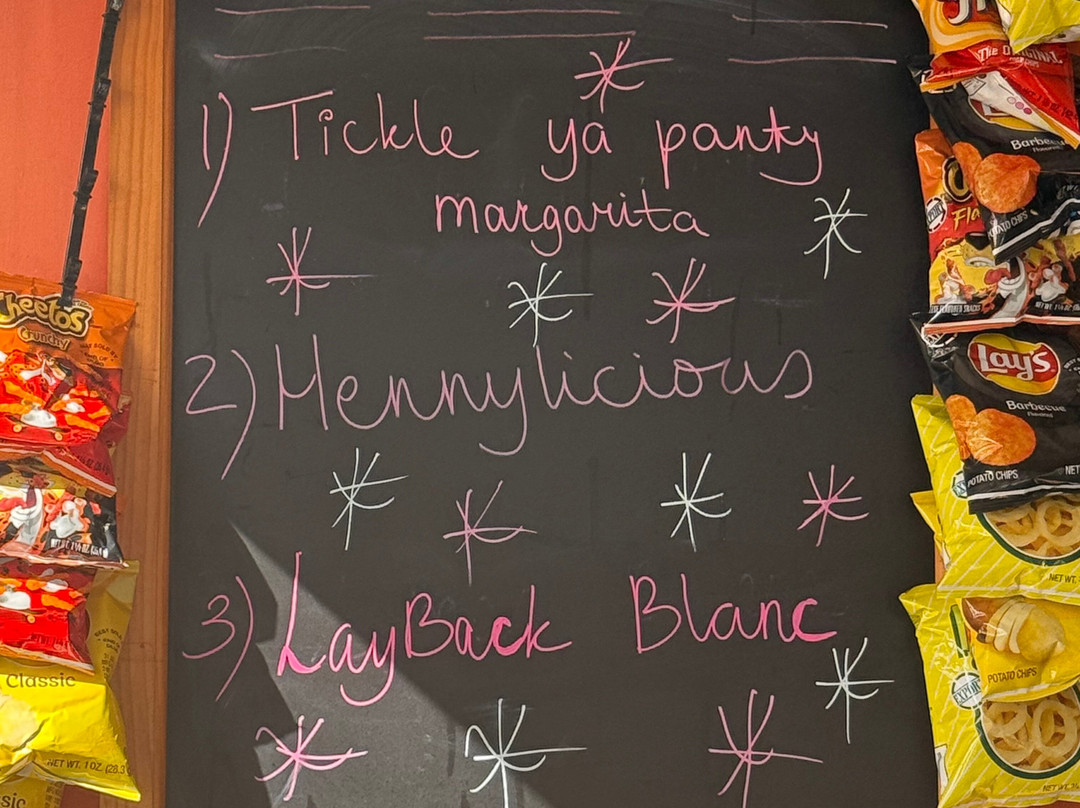 1) Tickle ya panty
margarita
2) Hennylicious
3) LayBack Blanc
Cheetos
Crunchy
Classic
NET WT. 1 OZ. (28.3
sic
The ORIGINAL
Barbecue
Flavored
POTATO CHIPS
Fla
Lay's
Barbecue
Flavored
POTATO CHIPS
NET
NET WT.
POTATO CHIPS
NET WT.